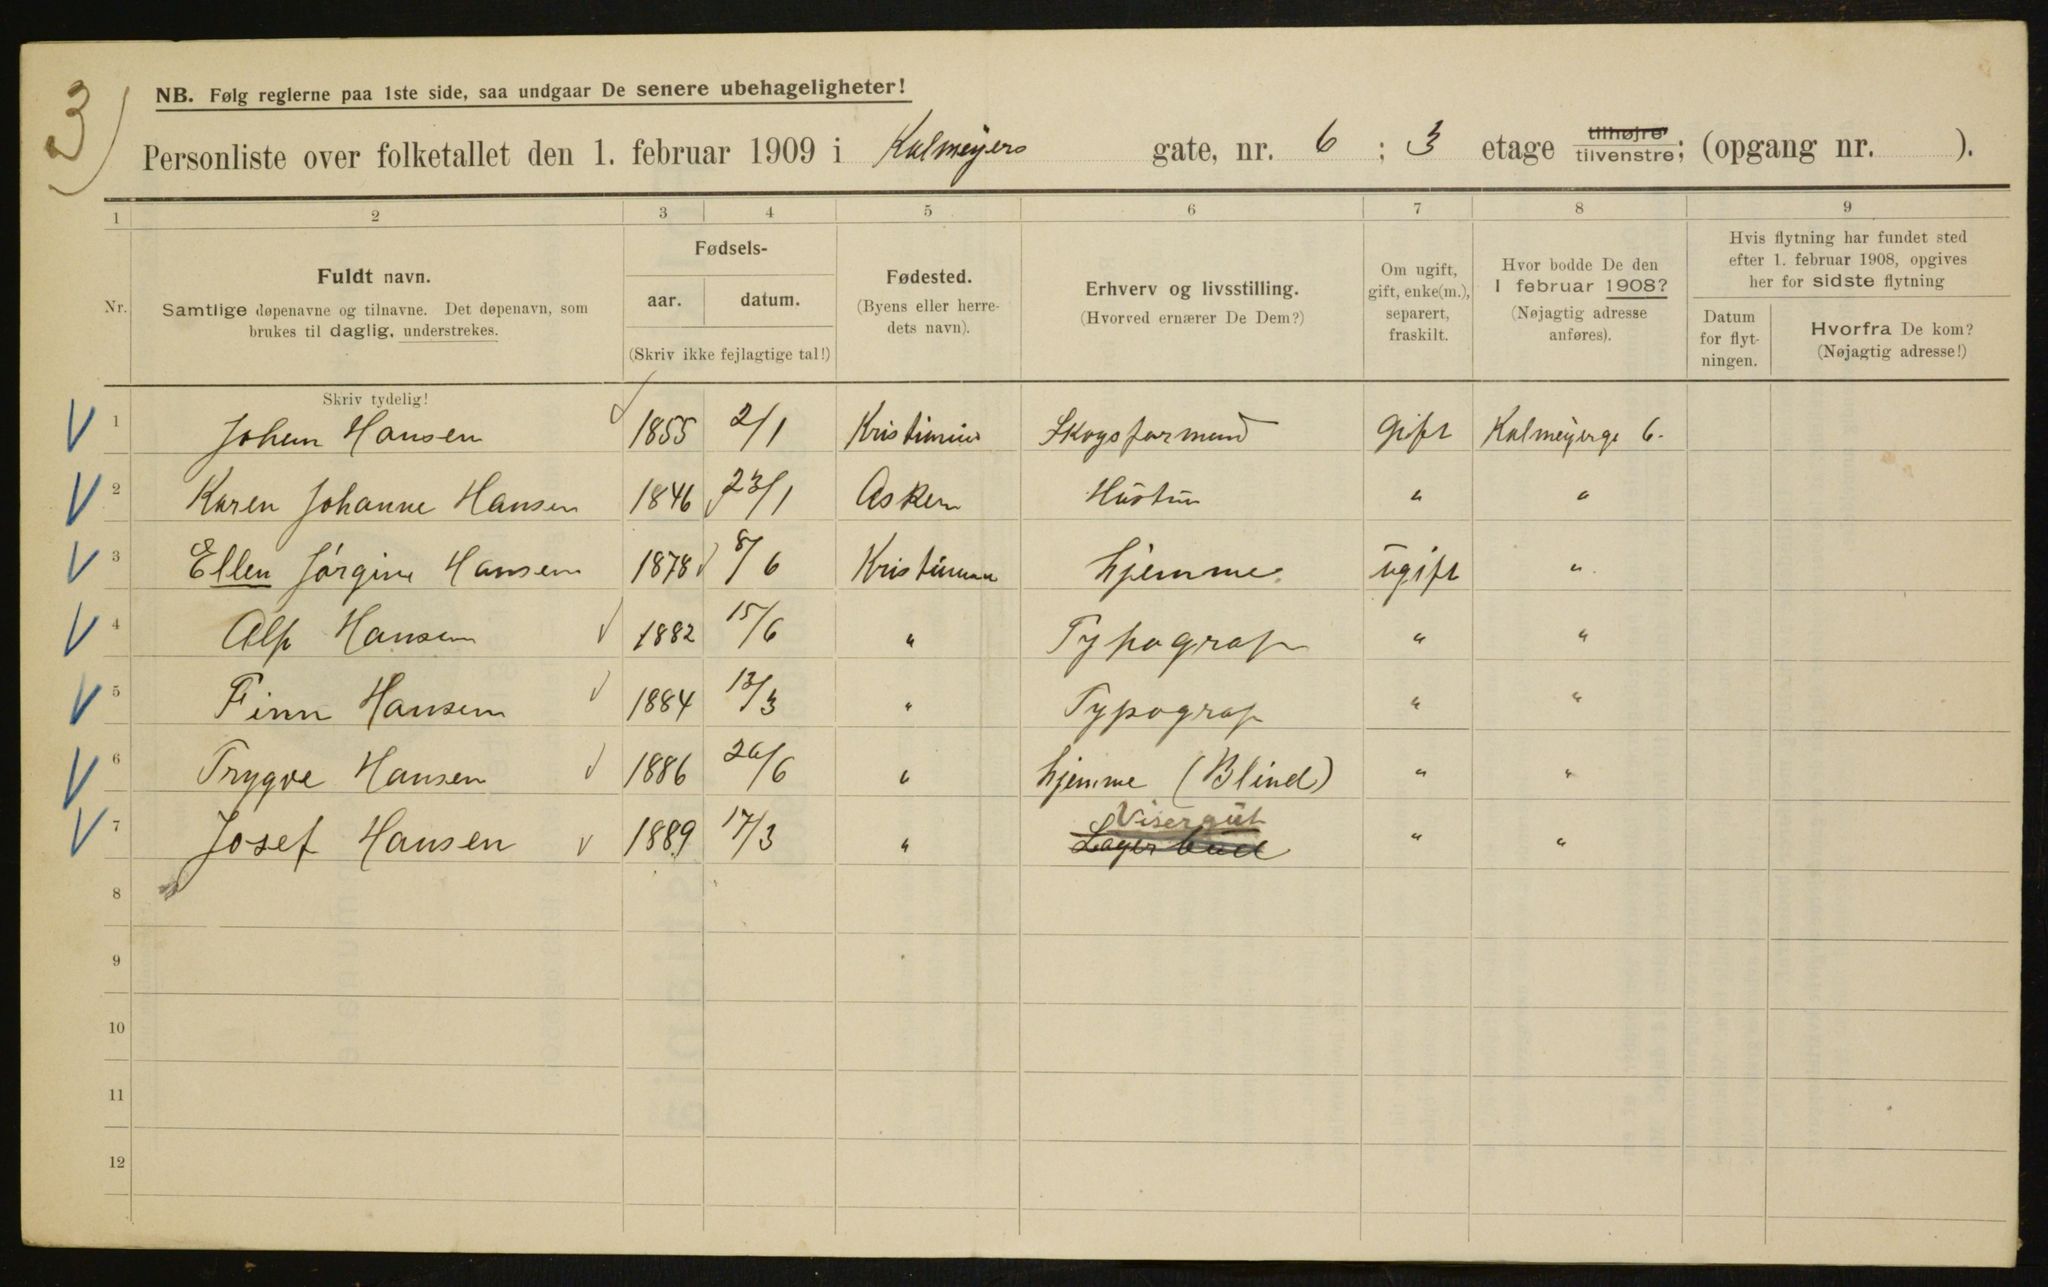 3)
NB. Følg reglerne paa 1ste side, saa undgaar De senere ubehageligheter!
Personliste over folketallet den 1. februar 1909 i Kalmeyers gate, nr. 6 ; 3 etage tilhøjre tilvenstre; (opgang nr. ).
1 2 3 4 5 6 7 8 9
Nr.
Fuldt navn.
Samtlige døpenavne og tilnavne. Det døpenavn, som
brukes til daglig, understrekes.
Fødsels-
aar. datum.
(Skriv ikke fejlagtige tal!)
Fødested.
(Byens eller herre-
dets navn).
Erhverv og livsstilling.
(Hvorved ernærer De Dem?)
Om ugift,
gift, enke(m.),
separert,
fraskilt.
Hvor bodde De den
1 februar 1908?
(Nøjagtig adresse
anføres).
Hvis flytning har fundet sted
efter 1. februar 1908, opgives
her for sidste flytning
Datum
for flyt-
ningen.
Hvorfra De kom?
(Nøjagtig adresse!)
Skriv tydelig!
1 Johan Hansen 1855 2/1 Kristiania Skogsformand Gift Kalmeyergt 6.
2 Karen Johanne Hansen 1846 23/1 Asker Hustru " "
3 Ellen Jörgine Hansen 1878 8/6 Kristiania hjemme ugift "
4 Alf Hansen 1882 15/6 " Typograf " "
5 Finn Hansen 1884 13/3 " Typograf " "
6 Trygve Hansen 1886 26/6 " hjemme (Blind) " "
7 Josef Hansen 1889 17/3 " Visergut Lagerbud " "
8
9
10
11
12